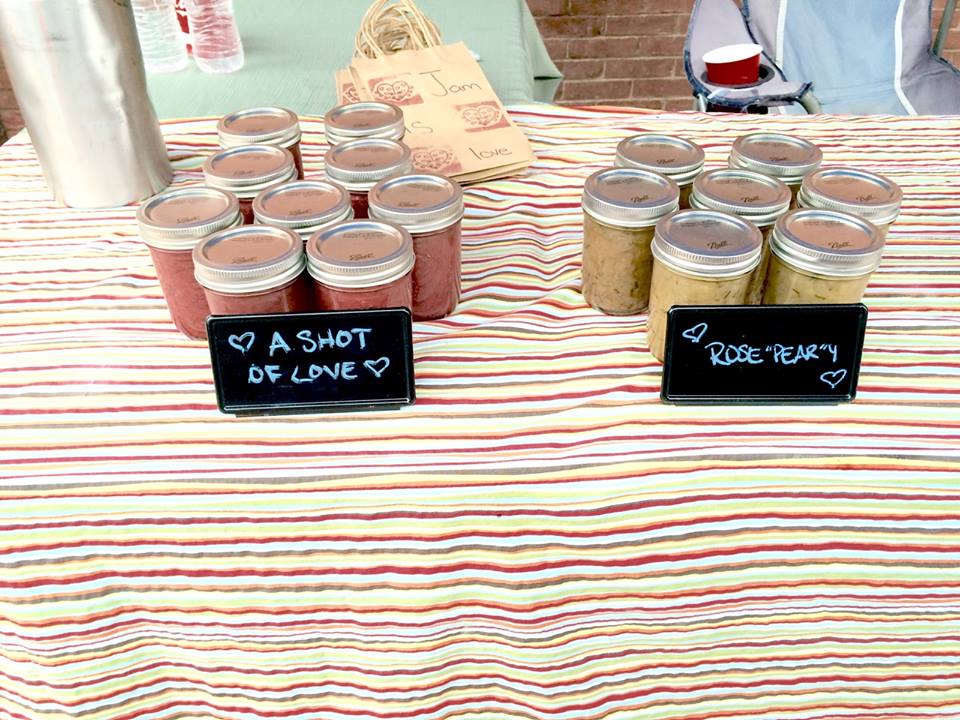 Jam
is
love
♡ A SHOT
OF LOVE ♡
ROSE "PEAR"Y
Ball